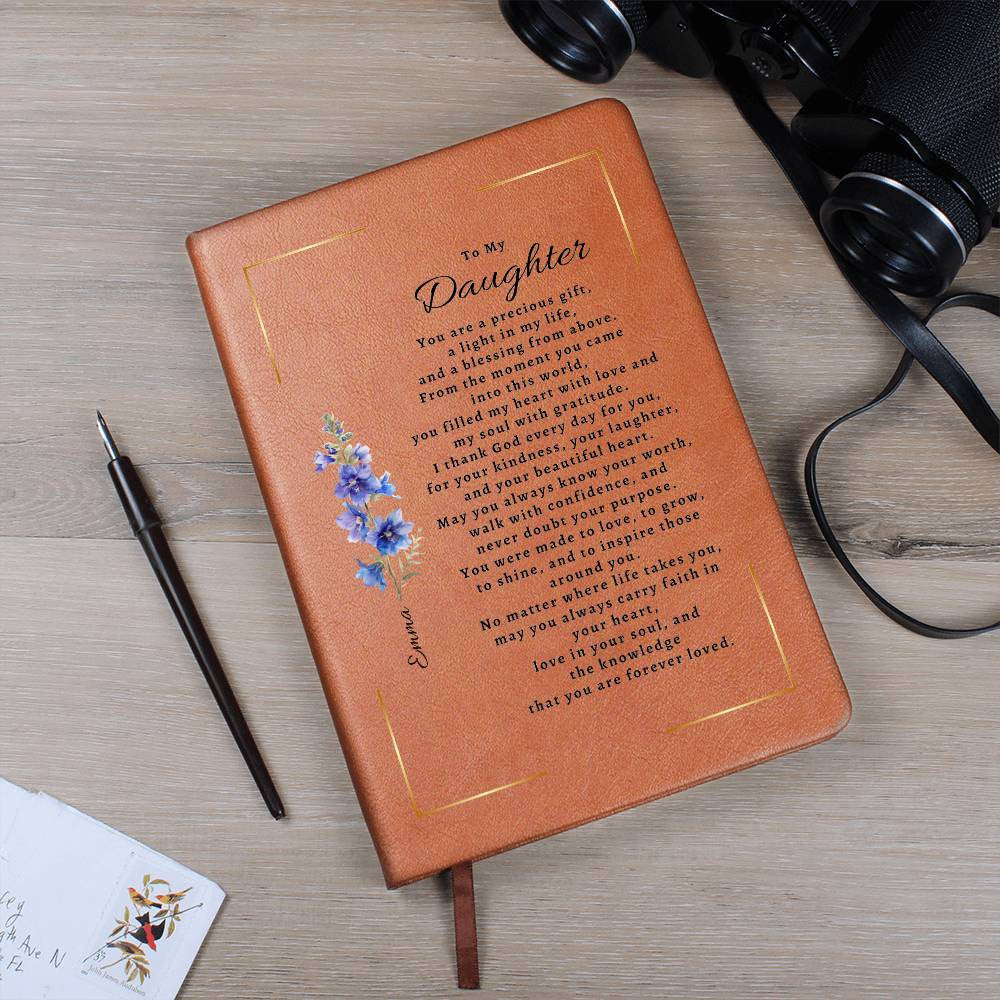 To My
Daughter
You are a precious gift,
a light in my life,
and a blessing from above.
From the moment you came
into this world,
you filled my heart with love and
my soul with gratitude.
I thank God every day for you,
for your kindness, your laughter,
and your beautiful heart.
May you always know your worth,
walk with confidence, and
never doubt your purpose.
You were made to love, to grow,
to shine, and to inspire those
around you.
No matter where life takes you,
may you always carry faith in
your heart,
love in your soul, and
the knowledge
that you are forever loved.
Emma
Ave N
FL
37
John James Audubon